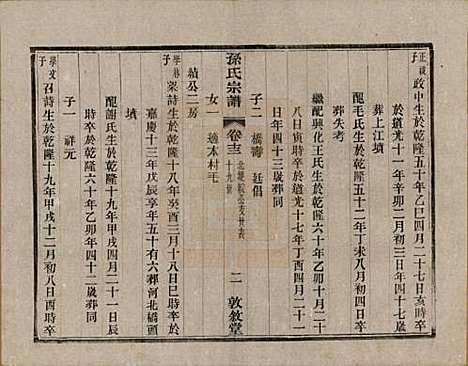 正 子
政中生於乾隆五十年乙巳四月二十七日亥時卒
於道光十一年辛卯二月初三日年四十七歲
葬上江墳
配毛氏生於乾隆五十二年丁未八月初四日卒
葬失考
繼配興化王氏生於乾隆六十年乙卯十月二十
八日寅時卒於道光十七年丁酉四月二十一
日年四十三歲葬同
子二 橋壽 廷倡
孫氏宗譜 卷十三 十九世 二 敦敘堂
女一 適本村毛
績公二房
學 子
梁詩生於乾隆十八年癸酉三月十八日巳時卒於
嘉慶十三年戊辰享年五十有六葬河北橋頭
墳
配謝氏生於乾隆十九年甲戌四月二十一日辰
時卒於乾隆六十年乙卯年四十二歲葬同
子一 祥元
學文 子
召詩生於乾隆十九年甲戌十二月初八日酉時卒